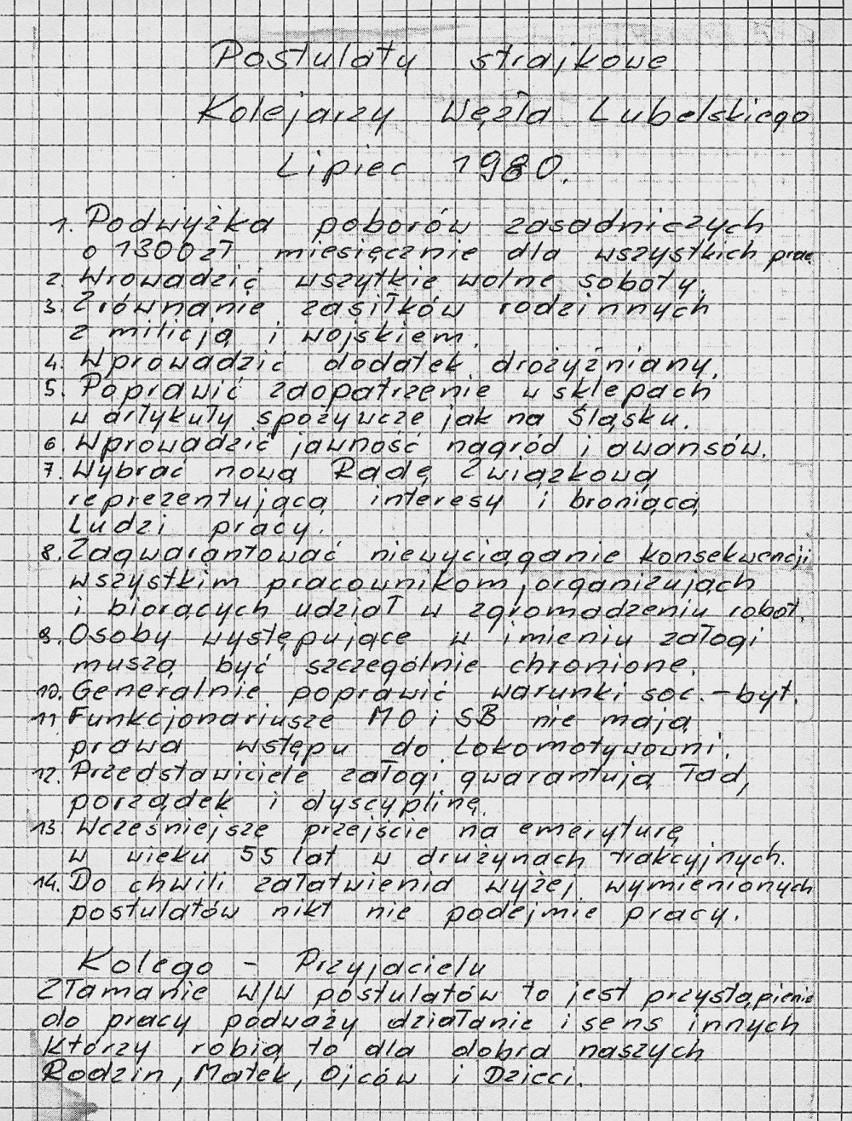 Postulaty strajkowe
Kolejarzy Węzła Lubelskiego
Lipiec 1980.
1. Podwyżka poborów zasadniczych
o 1300 zł miesięcznie dla wszystkich prac.
2. Wrowadzić wszytkie wolne soboty.
3. Zrównanie zasiłków rodzinnych
z milicją i wojskiem.
4. Wprowadzić dodatek drożyźniany.
5. Poprawić zaopatrzenie w sklepach
w artykuły spożywcze jak na Śląsku.
6. Wprowadzić jawność nagród i awansów.
7. Wybrać nową Radę Związkową
reprezentującą interesy i broniącą
Ludzi pracy.
8. Zagwarantować niewyciąganie konsekwencji
wszystkim pracownikom, organizująch
i biorących udział w zgromadzeniu robot.
9. Osoby występujące w imieniu załogi
muszą być szczególnie chronione.
10. Generalnie poprawić warunki soc.-byt.
11 Funkcjonariusze MO i SB nie mają
prawa wstępu do Lokomotywowni.
12. Przedstawiciele załogi gwarantują ład,
porządek i dyscyplinę.
13. Wcześniejsze przejście na emeryturę
w wieku 55 lat w drużynach trakcyjnych.
14. Do chwili załatwienia wyżej wymienionych
postulatów nikt nie podejmie pracy.
Kolego - Przyjacielu
Złamanie w/w postulatów to jest przystąpienie
do pracy podważy działanie i sens innych
którzy robią to dla dobra naszych
Rodzin, Matek, Ojców i Dzieci.